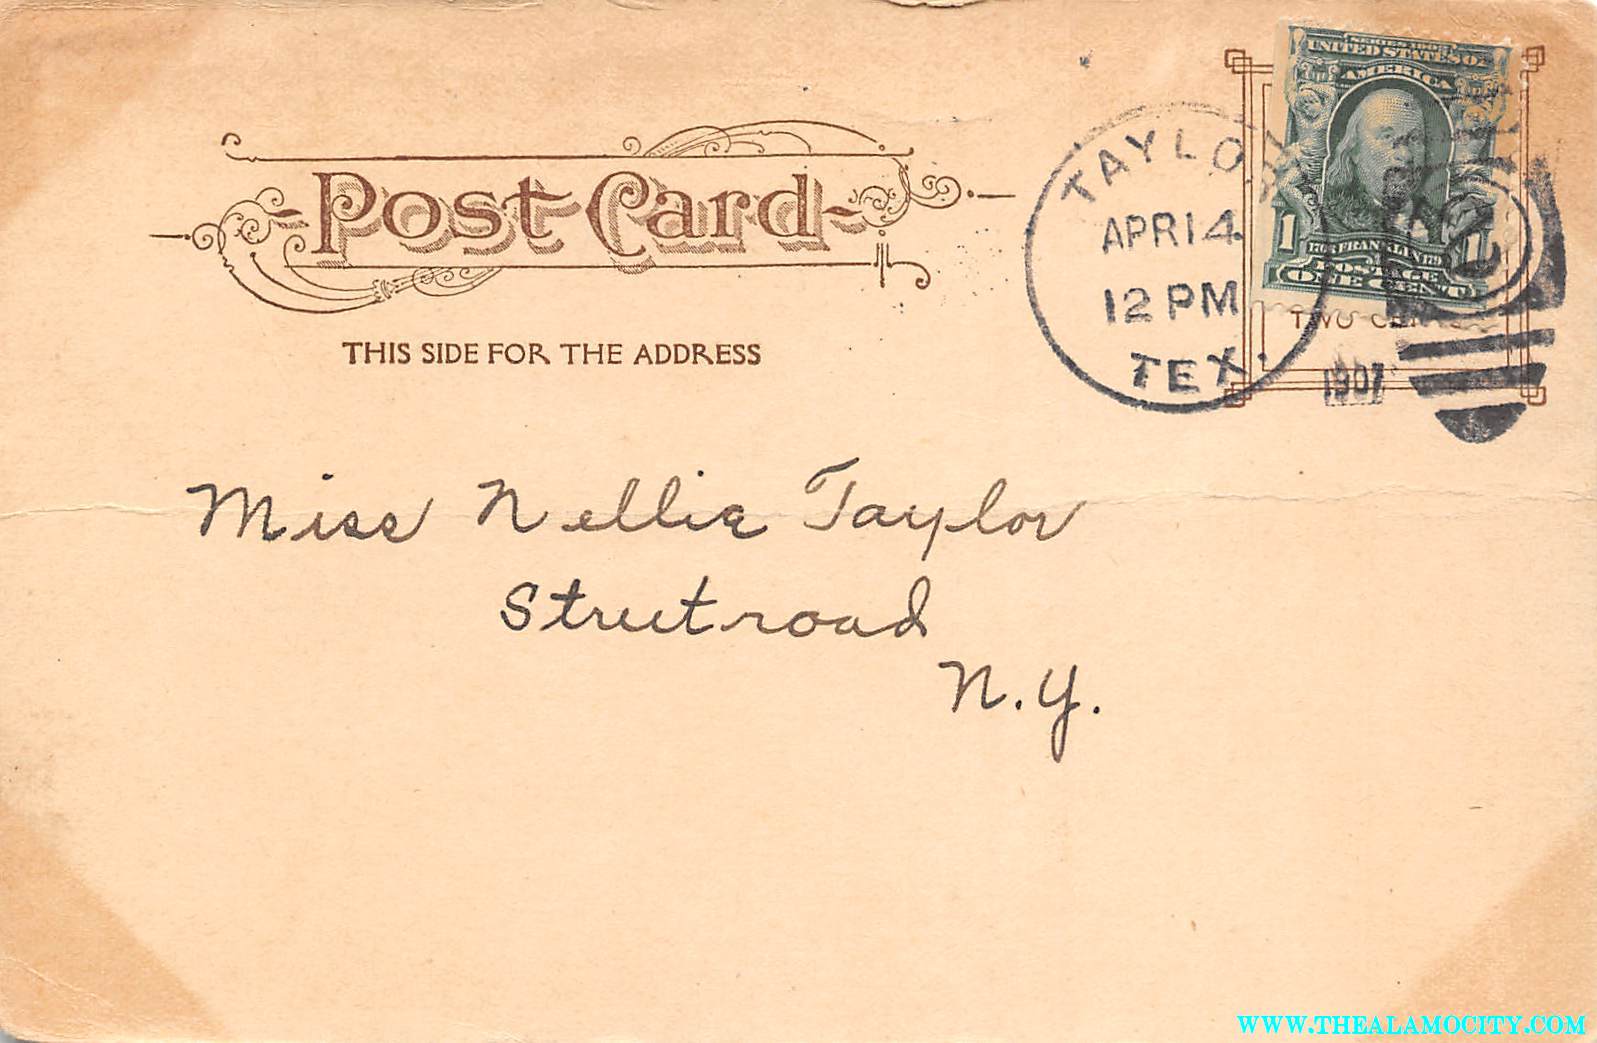 SERIES 1902
UNITED STATES OF
AMERICA
1 1706 FRANKLIN 1790 1
POSTAGE
ONE CENT
TWO CENTS
TAYLOR
APR 14
12 PM
TEX.
1907
Post Card
THIS SIDE FOR THE ADDRESS
Miss Nellie Taylor
Streetroad
N.Y.
WWW.THEALAMOCITY.COM